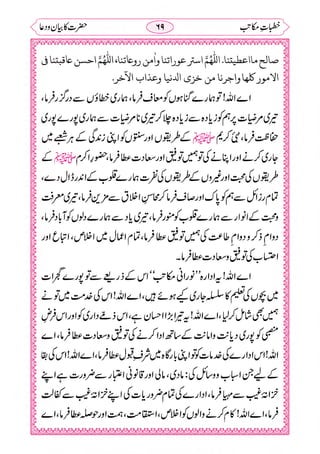 خطبات مکاتب ۶۹ حضرت کا بیان و دعا
صالح ما اعطیتنا. اَللّٰهُمَّ استر عوراتنا وأمن روعاتنا، اَللّٰهُمَّ احسن عاقبتنا فی
الامور كلها واجرنا من خزی الدنیا وعذاب الآخر.
اے اللہ! تو ہمارے گناہوں کو معاف فرما، ہماری خطاؤں سے درگزر فرما،
تیری مرضیات پر ہم کو زیادہ سے زیادہ چلا کر تیری نا مرضیات سے ہماری پوری پوری
حفاظت فرما، نبی کریم ﷺ کے طریقوں اور سنتوں کو اپنی زندگی کے ہر شعبے میں
جاری کرنے اور اپنانے کی تو ہمیں توفیق اور سعادت عطا فرما، حضور اکرم ﷺ کے
طریقوں کی محبت اور غیروں کے طریقوں کی نفرت ہمارے قلوب کے اندر ڈال دے،
تمام رزائل سے ہم کو پاک اور صاف فرما کر محاسن اخلاق سے مزین فرما، تیری معرفت
ومحبت کے انوار سے ہمارے قلوب کو منور فرما، تیری یاد سے ہمارے دلوں کو آباد فرما،
دوام ذکر و دوام طاعت کی ہمیں توفیق عطا فرما، تمام اعمال میں اخلاص، اور اتباع اور
احتساب کی توفیق وسعادت عطا فرما۔
اے اللہ! یہ ادارہ ''نورانی مکاتب'' اس کے ذریعے سے تو پورے گجرات
میں بچوں کی تعلیم کا سلسلہ جاری کیے ہوئے ہیں، اے اللہ! اس کی خدمت میں تو نے
ہمیں بھی شامل کر لیا، اے اللہ! یہ تیرا بڑا احسان ہے، اس ذمے داری کو اور اس فرض
منصبی کو پوری دیانت وامانت کے ساتھ ادا کرنے کی توفیق وسعادت عطا فرما، اے
اللہ! اس ادارے کی خدمات کو تو اپنی بارگاہ میں شرفِ قبول عطا فرما، اے اللہ! اس کی بقا
کے لیے جن اسباب ووسائل کی: مادی، مالی اور قانونی اعتبار سے ضرورت ہے اپنے
خزانۂ غیب سے مہیا فرما، ادارے کی تمام ضروریات کی اپنے خزانۂ غیب سے کفالت
فرما، اے اللہ! کام کرنے والوں کو اخلاص، استقامت، ہمت اور حوصلہ عطا فرما، اے